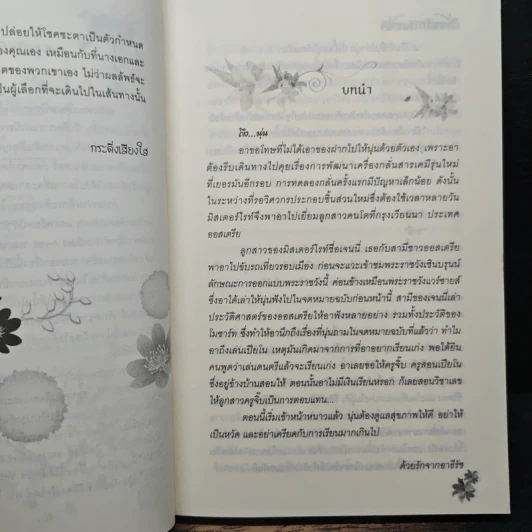 ปล่อยให้โชคชะตาเป็นตัวกำหนด
องคุณเอง เหมือนกับที่นางเอกและ
ตของพวกเขาเอง ไม่ว่าผลลัพธ์จะ
ป็นผู้เลือกที่จะเดินไปในเส้นทางนั้น
กระดิ่งเสียงใส
บทนำ
ถึง...นุ่น
อาขอโทษที่ไม่ได้เอาของฝากไปให้นุ่นด้วยตัวเอง เพราะอา
ต้องรีบเดินทางไปคุยเรื่องการพัฒนาเครื่องกลั่นสารเคมีรุ่นใหม่
ที่เยอรมันอีกรอบ การทดลองกลั่นครั้งแรกมีปัญหาเล็กน้อย ดังนั้น
ในระหว่างที่รอวิศวกรประกอบชิ้นส่วนใหม่ซึ่งต้องใช้เวลาหลายวัน
มิสเตอร์ไรท์จึงพาอาไปเยี่ยมลูกสาวคนโตที่กรุงเวียนนา ประเทศ
ออสเตรีย
ลูกสาวของมิสเตอร์ไรท์ชื่อเจนนี่ เธอกับสามีชาวออสเตรีย
พาอาไปขับรถเที่ยวรอบเมือง ก่อนจะแวะเข้าชมพระราชวังเชินบรุนน์
ลักษณะการออกแบบพระราชวังนี้ ค่อนข้างเหมือนพระราชวังแวร์ซายส์
ซึ่งอาได้เล่าให้นุ่นฟังไปในจดหมายฉบับก่อนหน้านี้ สามีของเจนนี่เล่า
ประวัติศาสตร์ของออสเตรียให้อาฟังหลายอย่าง รวมทั้งประวัติของ
โมซาร์ท ซึ่งทำให้อานึกถึงเรื่องที่นุ่นถามในจดหมายฉบับที่แล้วว่า ทำไม
อาถึงเล่นเปียโน เหตุมันเกิดมาจากการที่อาอยากเรียนเก่ง พอได้ยิน
คนพูดว่าเล่นดนตรีแล้วจะเรียนเก่ง อาเลยขอให้ครูจิ๊บ ครูสอนเปียโน
ซึ่งอยู่ข้างบ้านสอนให้ ตอนนั้นอาไม่มีเงินเรียนหรอก ก็เลยสอนวิชาเลข
ให้ลูกสาวครูจิ๊บเป็นการตอบแทน...
ตอนนี้เริ่มเข้าหน้าหนาวแล้ว นุ่นต้องดูแลสุขภาพให้ดี อย่าให้
เป็นหวัด และอย่าเครียดกับการเรียนมากเกินไป
ด้วยรักจากอาธีรัช